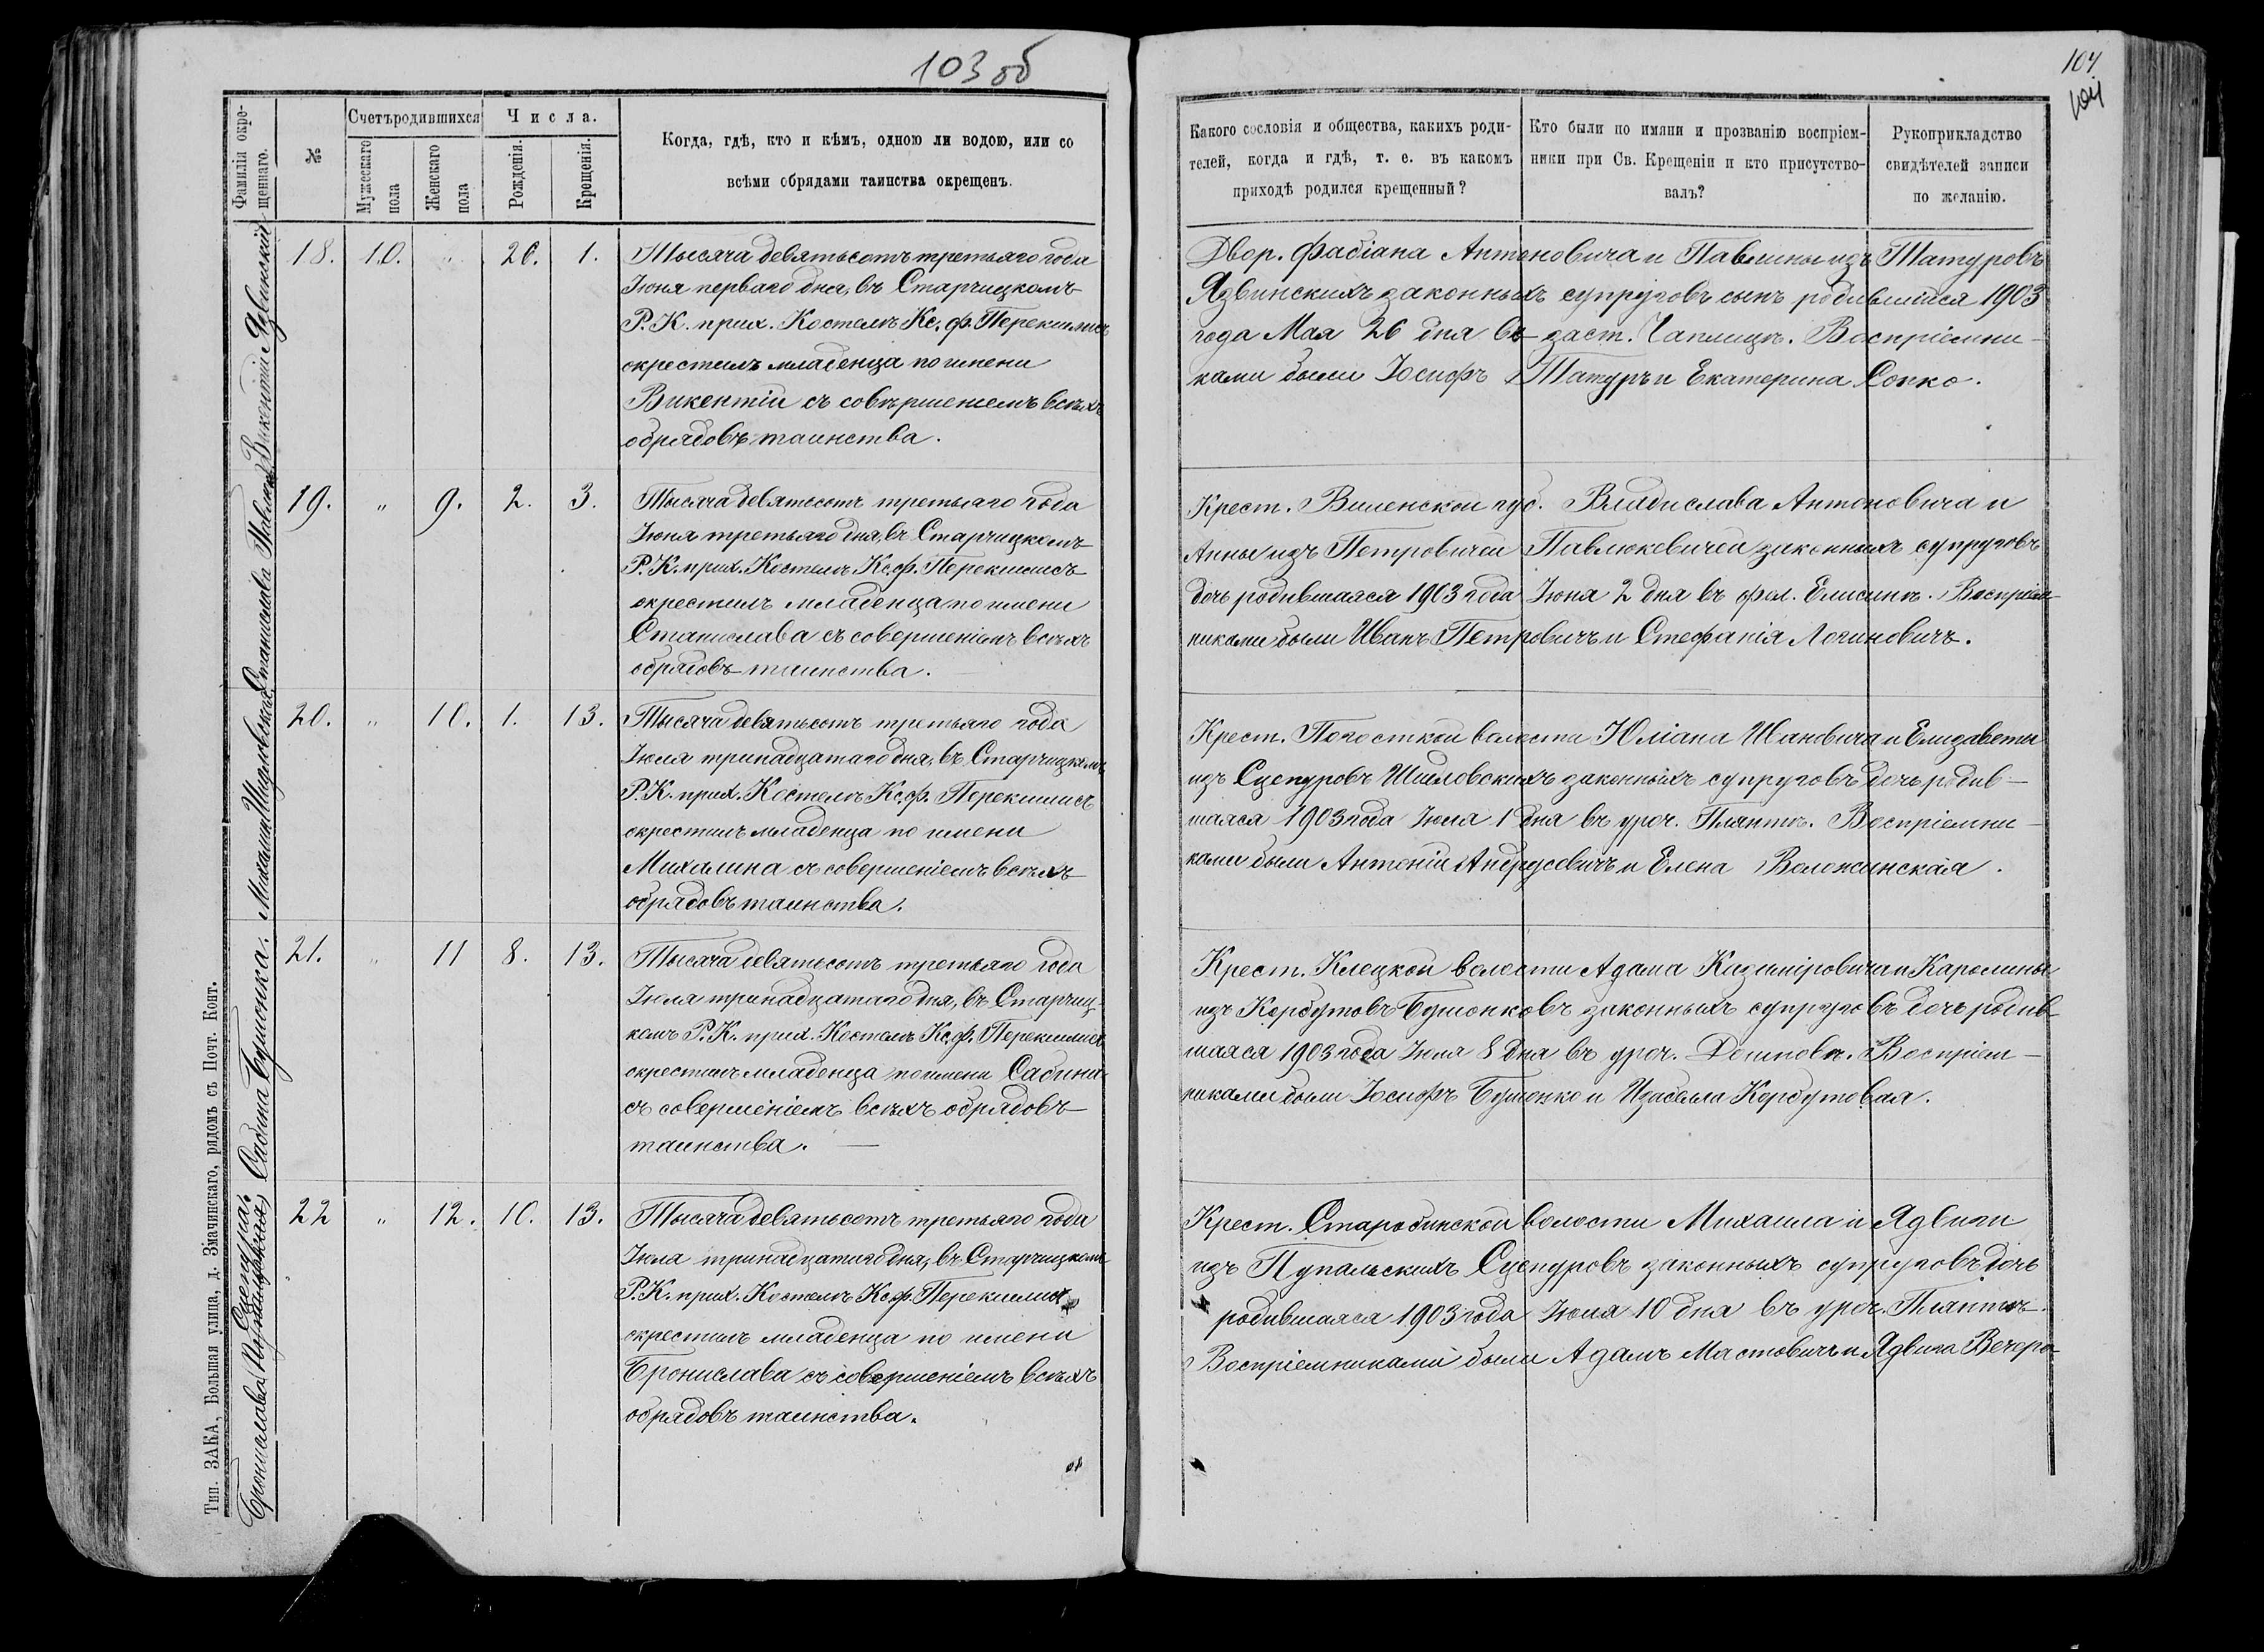 103 об
104
104
Фамилія окре-
щеннаго.
№
Счетъ родившихся
Мужескаго
пола
Женскаго
пола
Числа.
Рожденія.
Крещенія.
Когда, гдѣ, кто и кѣмъ, одною ли водою, или со
всѣми обрядами таинства окрещенъ.
Какого сословія и общества, какихъ роди-
телей, когда и гдѣ, т. е. въ какомъ
приходѣ родился крещенный?
Кто были по имяни и прозванію воспріем-
ники при Св. Крещеніи и кто присутство-
валъ?
Рукоприкладство
свидѣтелей записи
по желанію.
Викентій Ядвинскій
18. 10. " 26. 1.
Тысяча девятьсотъ третьяго года
Іюня перваго дня, въ Старчицкомъ
Р. К. прих. Костелѣ Кс. Ф. Перекшлисъ
окрестилъ младенца по имени
Викентій съ совершеніемъ всѣхъ
обрядовъ таинства.
Двор. Фабіана Антоновича и Павлины изъ Татуровъ
Ядвинскихъ законныхъ супруговъ сынъ родившійся 1903
года Мая 26 дня въ заст. Чаплицѣ. Воспріемни-
ками были Іосифъ Татуръ и Екатерина Сопко.
Станислава
19. " 9. 2. 3.
Тысяча девятьсотъ третьяго года
Іюня третьяго дня, въ Старчицкомъ
Р. К. прих. Костелѣ Кс. Ф. Перекшлисъ
окрестилъ младенца по имени
Станислава съ совершеніемъ всѣхъ
обрядовъ таинства.
Крест. Виленской губ. Владислава Антоновича и
Анны изъ Петровичей Павлюкевичей законныхъ супруговъ
дочь родившаяся 1903 года Іюня 2 дня въ фол. Елисинѣ. Воспріем-
никами были Иванъ Петровичъ и Стефанія Логиновичъ.
Михалина Шидловская.
20. " 10. 1. 13.
Тысяча девятьсотъ третьяго года
Іюля тринадцатаго дня, въ Старчицкомъ
Р. К. прих. Костелѣ Кс. Ф. Перекшлисъ
окрестилъ младенца по имени
Михалина съ совершеніемъ всѣхъ
обрядовъ таинства.
Крест. Погосткой волости Юліана Ивановича и Елизаветы
изъ Сцепуровъ Шидловскихъ законныхъ супруговъ дочь родив-
шаяся 1903 года Іюля 1 дня въ уроч. Плянтѣ. Воспріемни-
ками были Антоній Андрусевичъ и Елена Воложинская.
Сабина Бушонка.
21. " 11 8. 13.
Тысяча девятьсотъ третьяго года
Іюля тринадцатаго дня, въ Старчиц-
комъ Р. К. прих. Костелѣ Кс. Ф. Перекшлисъ
окрестилъ младенца по имени Сабина
съ совершеніемъ всѣхъ обрядовъ
таинства.
Крест. Клецкой волости Адама Казиміровича и Каролины
изъ Корбутовъ Бушонковъ законныхъ супруговъ дочь родив-
шаяся 1903 года Іюля 8 дня въ уроч. Воспріем-
никами были Іосифъ Бушонко и Изабелла Корбутовая.
Бронислава Сцепура.
22 " 12. 10. 13.
Тысяча девятьсотъ третьяго года
Іюля тринадцатаго дня, въ Старчицкомъ
Р. К. прих. Костелѣ Кс. Ф. Перекшлисъ
окрестилъ младенца по имени
Бронислава съ совершеніемъ всѣхъ
обрядовъ таинства.
Крест. Старобинской волости Михаила и Ядвиги
изъ Пупальскихъ Сцепуровъ законныхъ супруговъ дочь
родившаяся 1903 года Іюля 10 дня въ уроч. Плянтѣ.
Воспріемниками были Адамъ Мастовичъ и Ядвига Вечора-
Тип. ЗАКА, Большая улица, д. Значинскаго, рядомъ съ Почт. Конт.